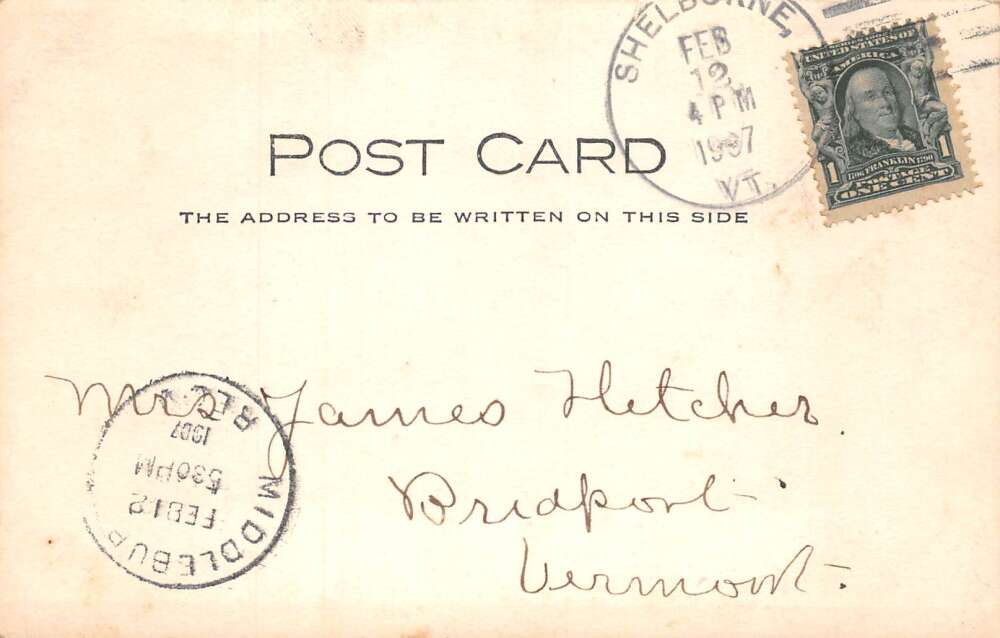 SHELBURNE,
FEB
12
4 PM
1907
VT.
UNITED STATES OF
AMERICA
1 1706 FRANKLIN 1790 1
POSTAGE
ONE CENT
POST CARD
THE ADDRESS TO BE WRITTEN ON THIS SIDE
Mrs James Fletcher.
Bridport
Vermont.
MIDDLEBUR
FEB 12
530PM
1907
REC'D